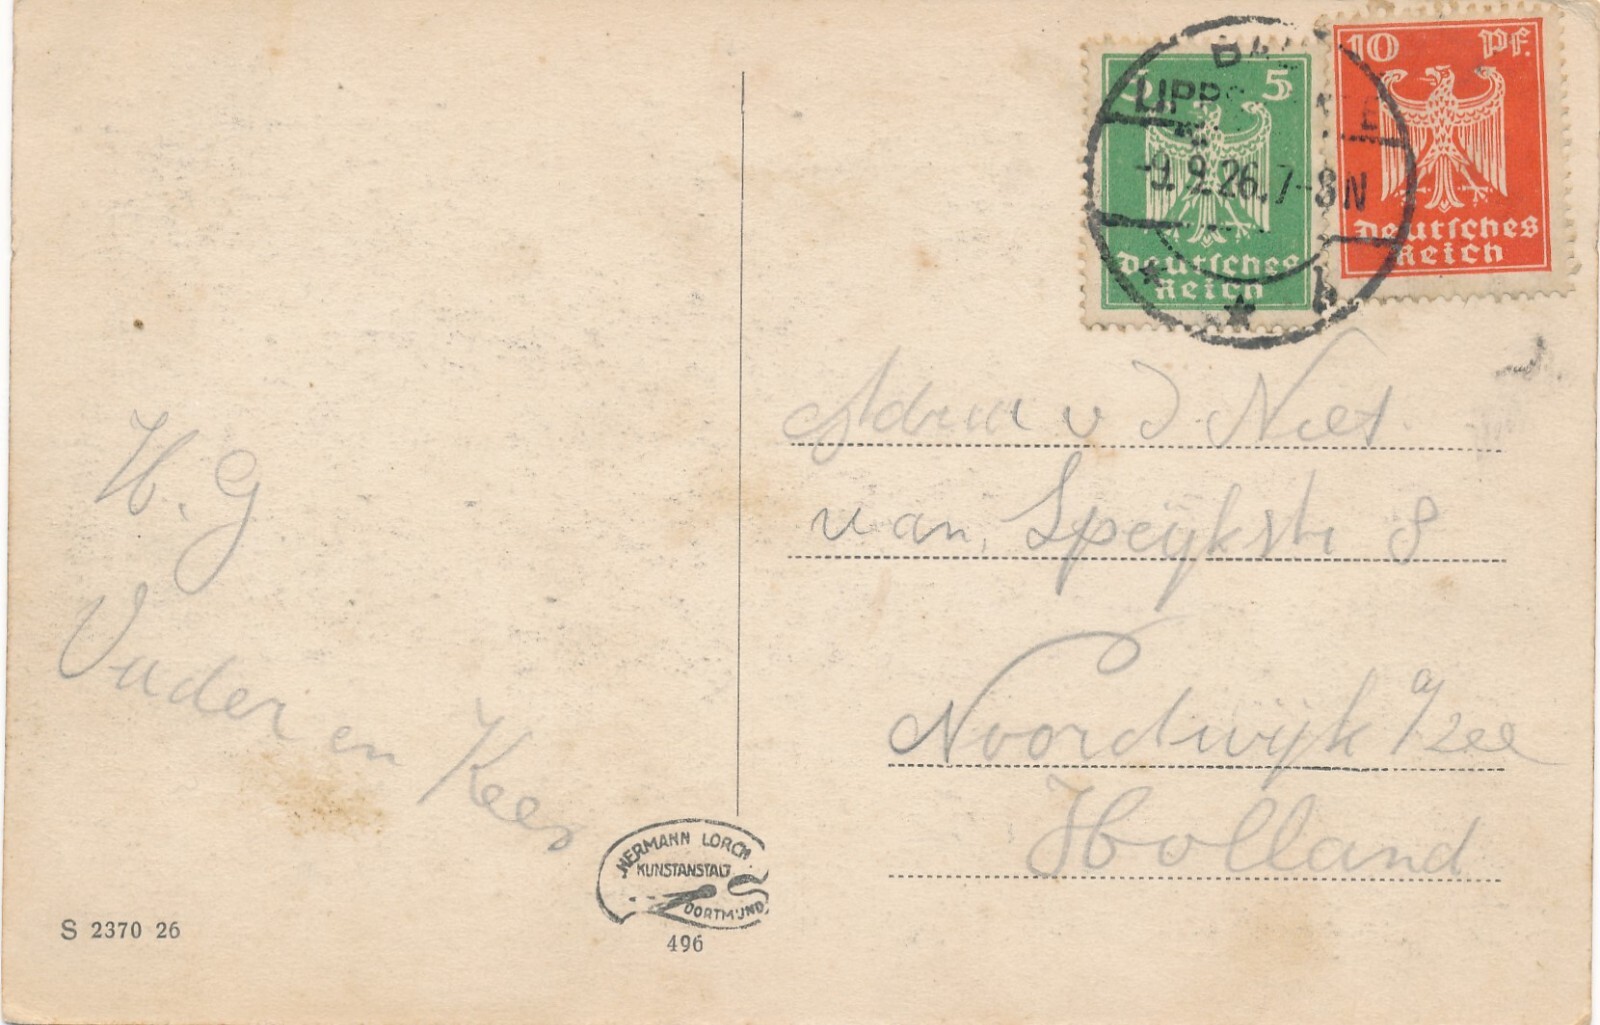 5
10 Pf.
Deutsches
Reich
Deutsches
Reich
BAD
LIPP
-9.9.26.7-8N
b
H. G
Vader en Kees
Adria v d. Niet
van Speijkstr 8
Noordwijk a/zee
Holland
HERMANN LORCH
KUNSTANSTALT
DORTMUND
496
S 2370 26